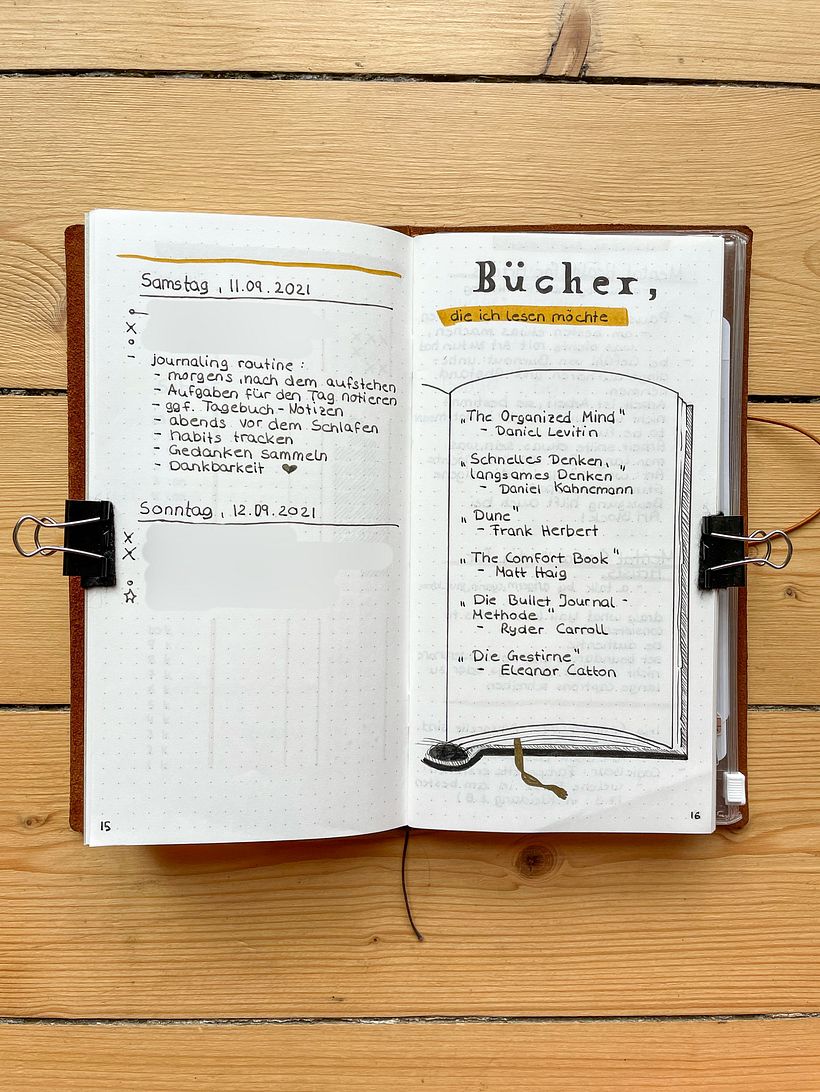 Samstag, 11.09.2021
journaling routine:
- morgens, nach dem aufstehen
- Aufgaben für den Tag notieren
- ggf. Tagebuch-Notizen
- abends vor dem Schlafen
- habits tracken
- Gedanken sammeln
- Dankbarkeit ♥
Sonntag, 12.09.2021
15
Bücher,
die ich lesen möchte
„The Organized Mind"
- Daniel Levitin
„Schnelles Denken,
langsames Denken"
- Daniel Kahnemann
„Dune"
- Frank Herbert
„The Comfort Book"
- Matt Haig
„Die Bullet Journal-
Methode"
- Ryder Carroll
„Die Gestirne"
- Eleanor Catton
16